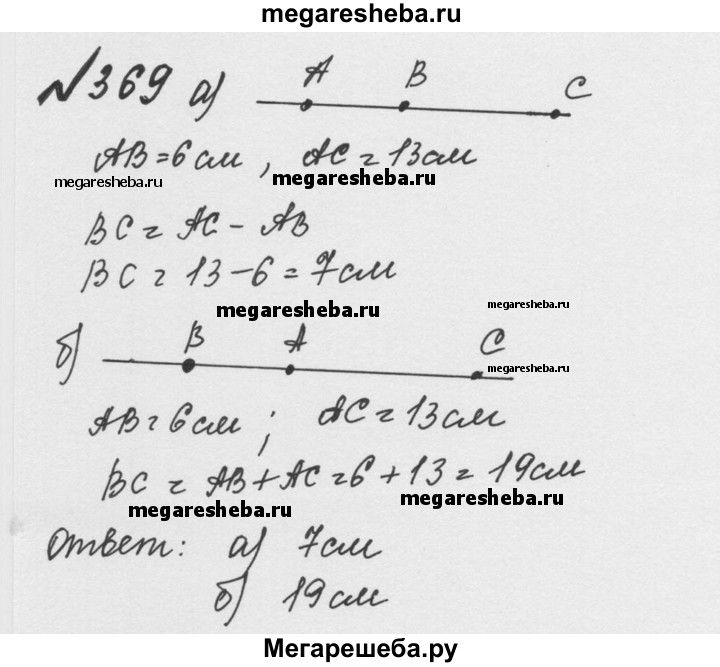 megaresheba.ru
№369 а) A B C
AB = 6 см, AC = 13 см
megaresheba.ru megaresheba.ru
BC = AC - AB
BC = 13 - 6 = 7 см
megaresheba.ru megaresheba.ru
б) B A C
megaresheba.ru
AB = 6 см; AC = 13 см
BC = AB + AC = 6 + 13 = 19 см
megaresheba.ru megaresheba.ru
Ответ: а) 7 см
б) 19 см
Мегарешеба.ру